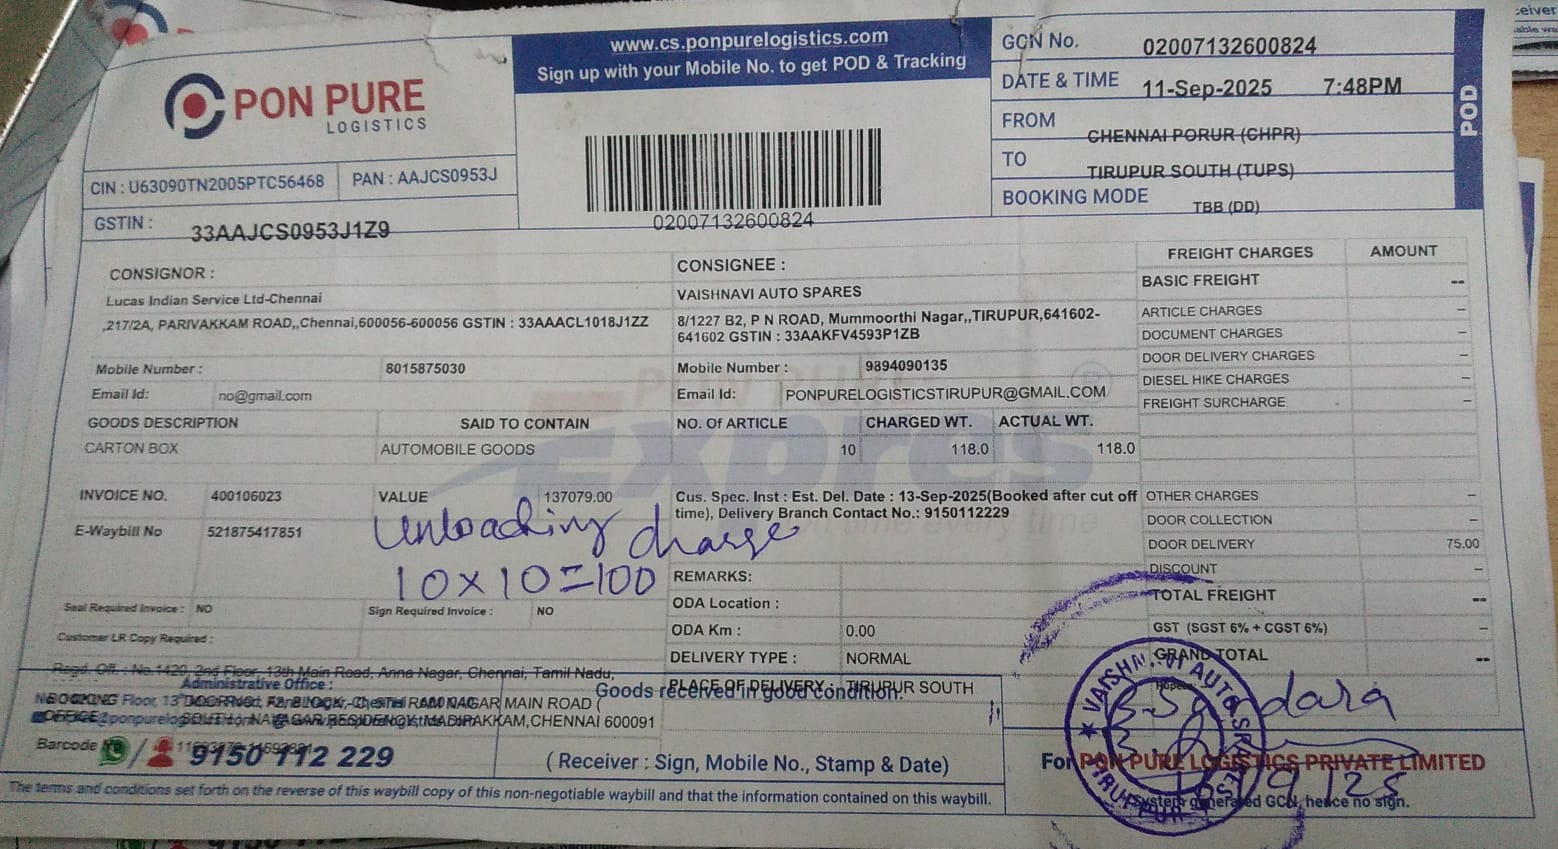 www.cs.ponpurelogistics.com
Sign up with your Mobile No. to get POD & Tracking
PON PURE
LOGISTICS
CIN : U63090TN2005PTC56468 PAN : AAJCS0953J
GSTIN : 33AAJCS0953J1Z9
02007132600824
GCN No. 02007132600824
DATE & TIME 11-Sep-2025 7:48PM
FROM CHENNAI PORUR (CHPR)
TO TIRUPUR SOUTH (TUPS)
BOOKING MODE TBB (DD)
POD
CONSIGNOR :
Lucas Indian Service Ltd-Chennai
,217/2A, PARIVAKKAM ROAD,,Chennai,600056-600056 GSTIN : 33AAACL1018J1ZZ
Mobile Number : 8015875030
Email Id: no@gmail.com
CONSIGNEE :
VAISHNAVI AUTO SPARES
8/1227 B2, P N ROAD, Mummoorthi Nagar,,TIRUPUR,641602-
641602 GSTIN : 33AAKFV4593P1ZB
Mobile Number : 9894090135
Email Id: PONPURELOGISTICSTIRUPUR@GMAIL.COM
GOODS DESCRIPTION SAID TO CONTAIN NO. Of ARTICLE CHARGED WT. ACTUAL WT.
CARTON BOX AUTOMOBILE GOODS 10 118.0 118.0
INVOICE NO. 400106023 VALUE 137079.00
E-Waybill No 521875417851
Unloading charge
10x10=100
Cus. Spec. Inst : Est. Del. Date : 13-Sep-2025(Booked after cut off
time), Delivery Branch Contact No.: 9150112229
REMARKS:
ODA Location :
ODA Km : 0.00
DELIVERY TYPE : NORMAL
PLACE OF DELIVERY : TIRUPUR SOUTH
Seal Required Invoice : NO Sign Required Invoice : NO
Customer LR Copy Required :
FREIGHT CHARGES AMOUNT
BASIC FREIGHT --
ARTICLE CHARGES --
DOCUMENT CHARGES --
DOOR DELIVERY CHARGES --
DIESEL HIKE CHARGES --
FREIGHT SURCHARGE --
OTHER CHARGES --
DOOR COLLECTION --
DOOR DELIVERY 75.00
DISCOUNT --
TOTAL FREIGHT --
GST (SGST 6% + CGST 6%) --
GRAND TOTAL --
Regd. Off. : No.1420, 2nd Floor, 13th Main Road, Anna Nagar, Chennai, Tamil Nadu,
Administrative Office :
MADIPAKKAM,CHENNAI 600091
Barcode
9150 112 229
Goods received in good condition.
(Receiver : Sign, Mobile No., Stamp & Date)
VAISHNAVI AUTO SPARES
TIRUPUR
For PON PURE LOGISTICS PRIVATE LIMITED
System generated GCN, hence no sign.
The terms and conditions set forth on the reverse of this waybill copy of this non-negotiable waybill and that the information contained on this waybill.